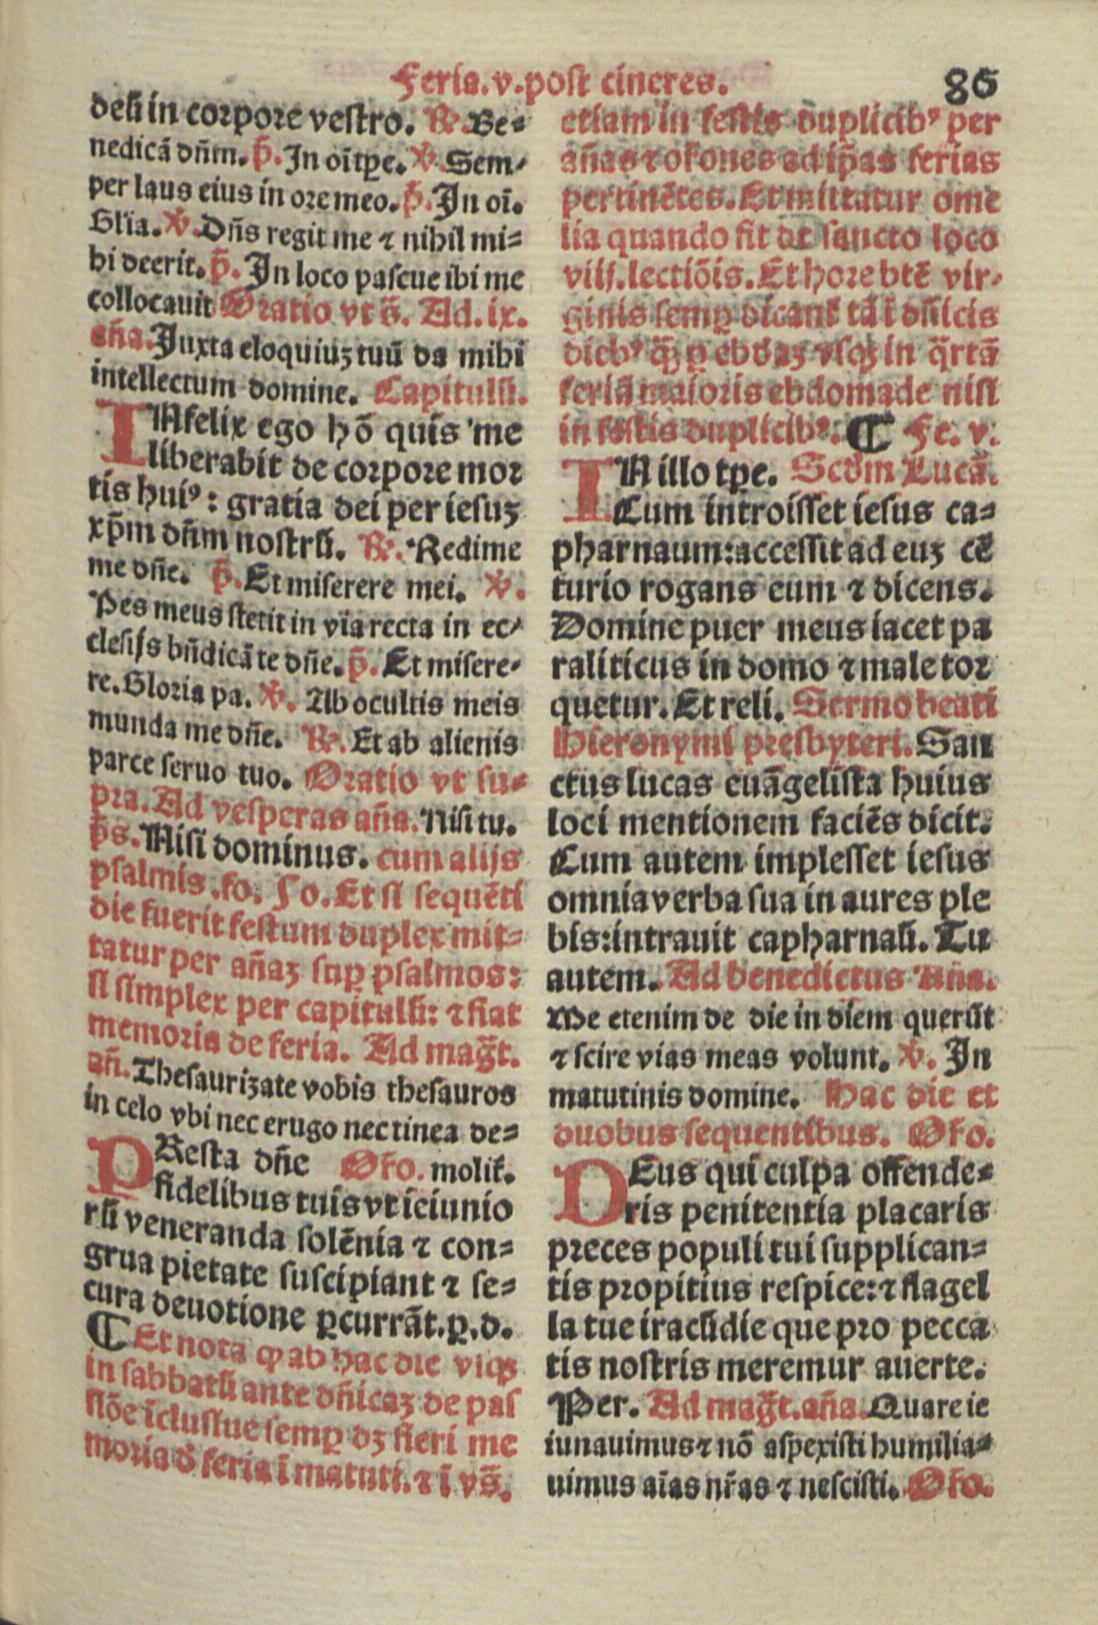 Feria.v.post cineres. 86
deũ in corpore vestro. ℟. Be-
nedicã dñm. p̃. In oĩ tp̃e. ℣. Sem-
per laus eius in ore meo. p̃. In oĩ.
Glĩa. ℣. Dñs regit me ⁊ nihil mi-
hi deerit. p̃. In loco pascue ibi me
collocauit Oratio vt s̃. Ad. ix.
añа. Juxta eloquiuꝫ tuũ da mihi
intellectum domine. Capitulũ.
INfelix ego hõ quis me
liberabit de corpore mor
tis huiꝰ: gratia dei per iesuꝫ
xp̃m dñm nostrũ. ℟. Redime
me dñe. p̃. Et miserere mei. ℣.
Pes meus stetit in via recta in ec-
clesijs bñdicã te dñe. p̃. Et misere-
re. Gloria pa. ℣. Ab ocultis meis
munda me dñe. ℟. Et ab alienis
parce seruo tuo. Oratio vt su-
pra. Ad vesperas aña. Nisi tu.
p̃s. Nisi dominus. cum alijs
psalmis. fo. 50. Et si sequẽti
die fuerit festum duplex mit-
tatur per añaꝫ suꝑ psalmos:
si simplex per capitulũ: ⁊ fiat
memoria de feria. Ad mag̃t.
añ. Thesaurizate vobis thesauros
in celo vbi nec erugo nec tinea de-
PResta dñe Oŕo. molit̃.
fidelibus tuis vt ieiunio
rũ veneranda solẽnia ⁊ con-
grua pietate suscipiant ⁊ se-
cura deuotione ꝑcurrãt. ꝑ. d.
¶ Et nota ꝙ ab hac die vsqꝫ
in sabbatũ ante dñicaꝫ de pas
siõe ĩclusiue semꝑ dꝫ fieri me
moria d̃ feria ĩ matuti. ⁊ ĩ vs̃.
etiam in festis duplicibꝰ per
añas ⁊ oŕones ad ip̃as ferias
pertinẽtes. Et mittatur ome
lia quando fit de sancto loco
viij. lectiõis. Et hore btẽ vir-
ginis semꝑ dicant̃ tã ĩ dñicis
diebꝰ q̃ꝫ ꝑ ebdaꝫ vsqꝫ in q̃rtã
feriã maioris ebdomade nisi
in festis duplicibꝰ. ¶ Fe. v.
IN illo tꝑe. Scd̃m Lucã.
Cum introisset iesus ca-
pharnaum: accessit ad euꝫ cẽ
turio rogans eum ⁊ dicens.
Domine puer meus iacet pa
raliticus in domo ⁊ male tor
quetur. Et reli. Sermo beati
Hieronymi presbyteri. San
ctus lucas euãgelista huius
loci mentionem faciẽs dicit.
Cum autem implesset iesus
omnia verba sua in aures ple
bis: intrauit capharnaũ. Tu
autem. Ad benedictus Aña.
Me etenim de die in diem querũt
⁊ scire vias meas volunt. ℣. In
matutinis domine. Hac die et
duobus sequentibus. Oŕo.
DEus qui culpa offende-
ris penitentia placaris
preces populi tui supplican-
tis propitius respice: ⁊ flagel
la tue iracũdie que pro pecca
tis nostris meremur auerte.
Per. Ad mag̃t. aña. Quare ie
iunauimus ⁊ nõ aspexisti humilia-
uimus aĩas nŕas ⁊ nescisti. Oŕo.